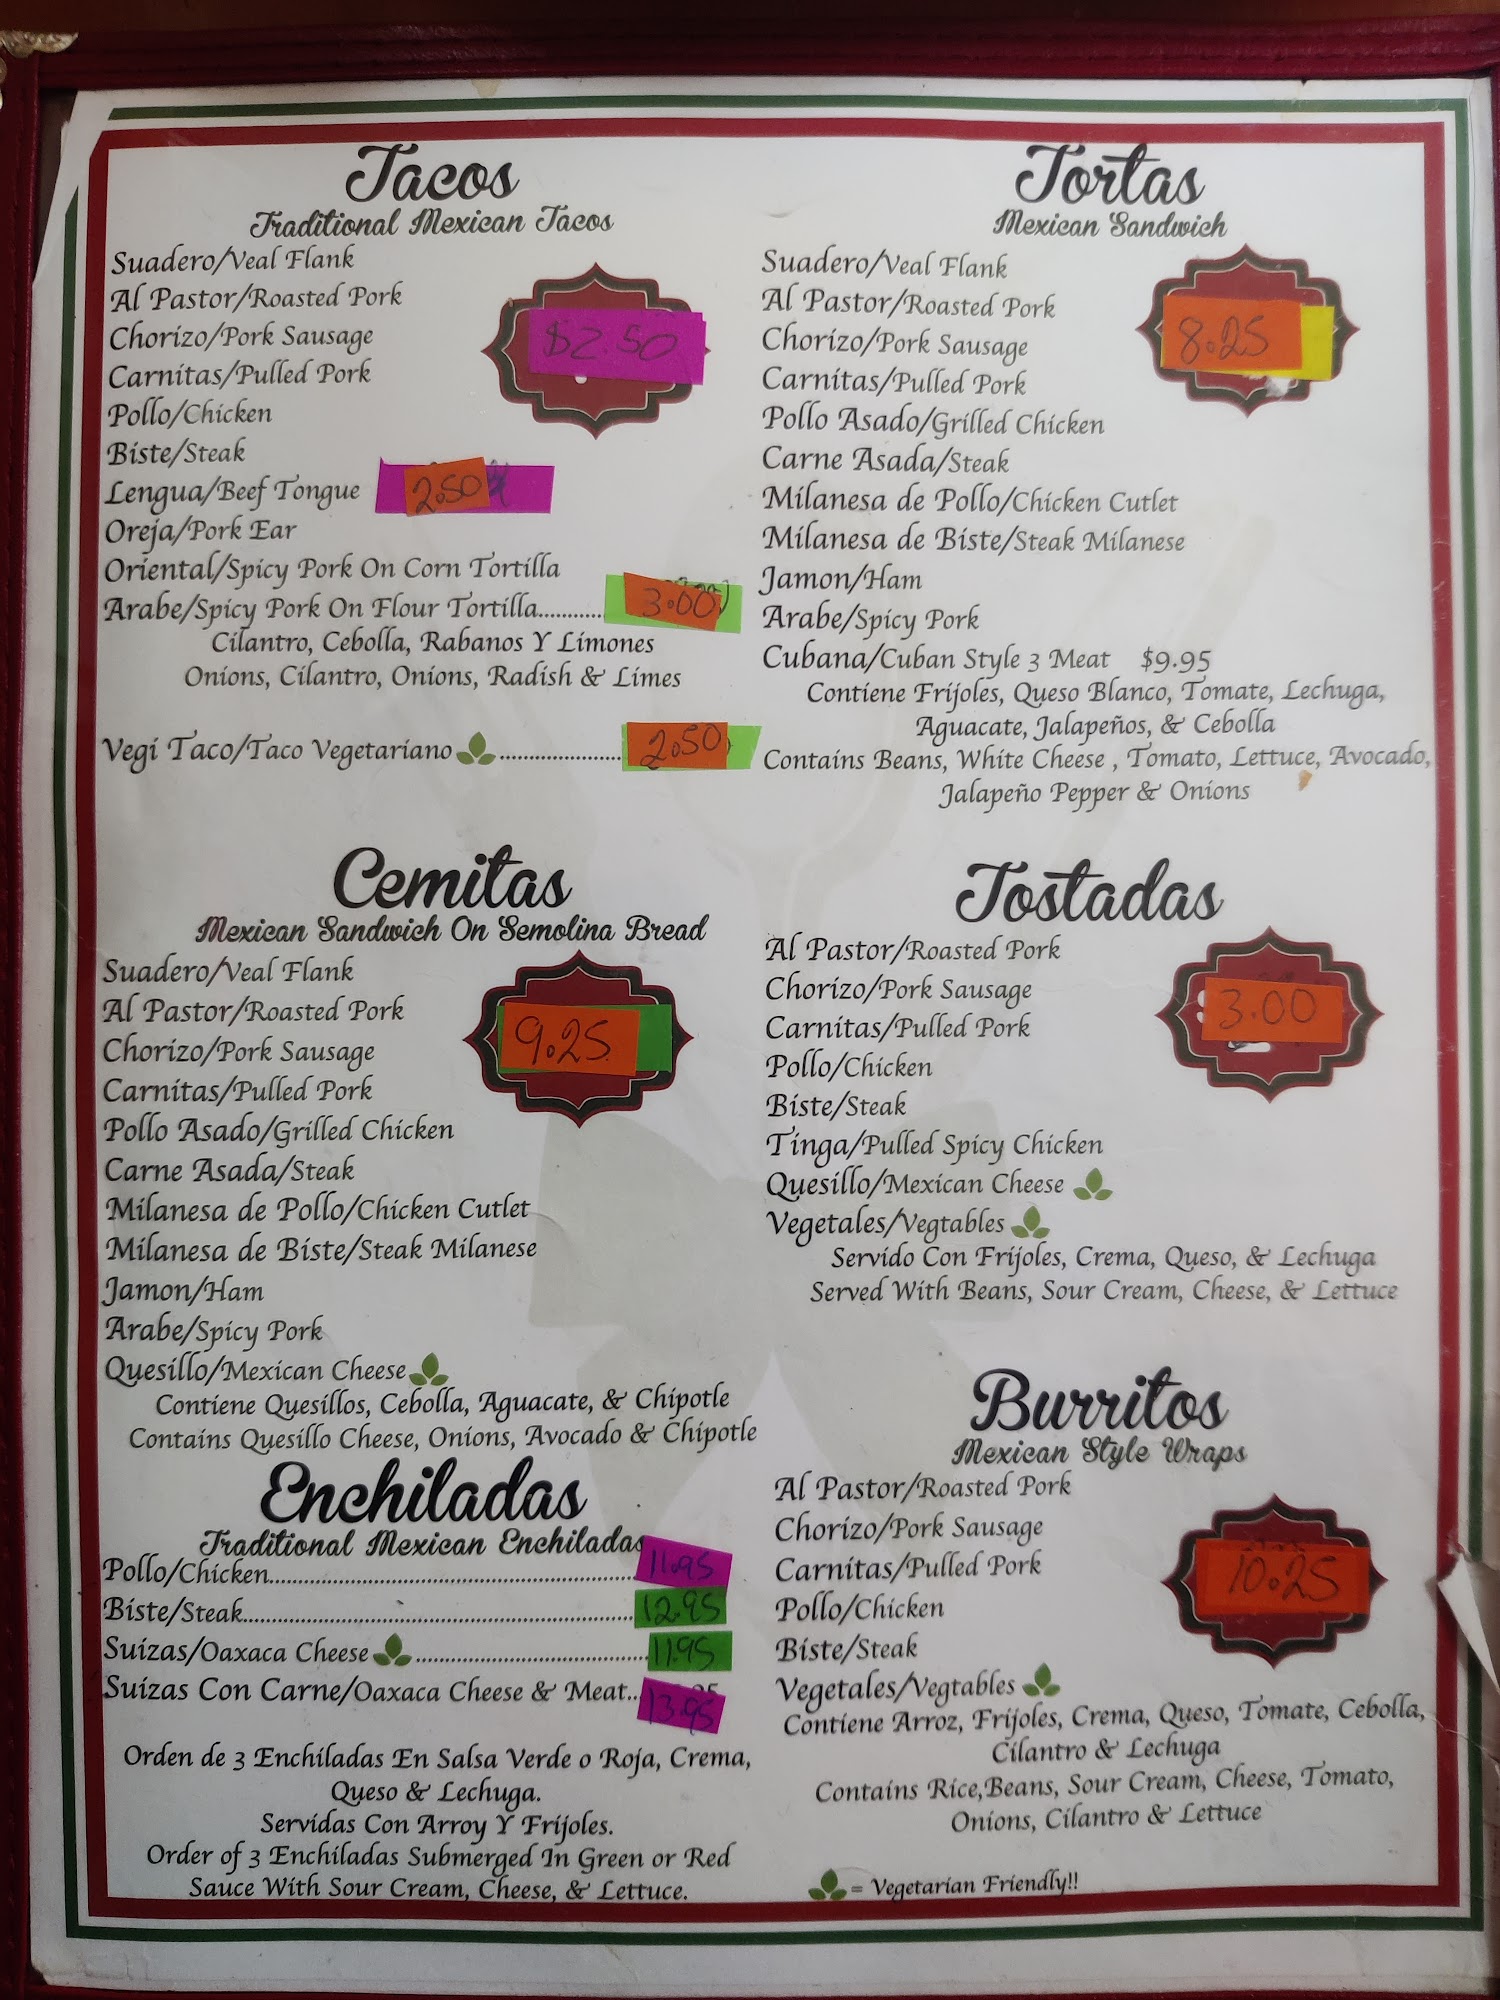 Tacos
Traditional Mexican Tacos
Suadero/Veal Flank
Al Pastor/Roasted Pork
Chorizo/Pork Sausage
$2.50
Carnitas/Pulled Pork
Pollo/Chicken
Biste/Steak
Lengua/Beef Tongue 2.50
Oreja/Pork Ear
Oriental/Spicy Pork On Corn Tortilla
Arabe/Spicy Pork On Flour Tortilla............ 3.00
Cilantro, Cebolla, Rabanos Y Limones
Onions, Cilantro, Onions, Radish & Limes
Vegi Taco/Taco Vegetariano ...................... 2.50
Cemitas
Mexican Sandwich On Semolina Bread
Suadero/Veal Flank
Al Pastor/Roasted Pork
9.25
Chorizo/Pork Sausage
Carnitas/Pulled Pork
Pollo Asado/Grilled Chicken
Carne Asada/Steak
Milanesa de Pollo/Chicken Cutlet
Milanesa de Biste/Steak Milanese
Jamon/Ham
Arabe/Spicy Pork
Quesillo/Mexican Cheese
Contiene Quesillos, Cebolla, Aguacate, & Chipotle
Contains Quesillo Cheese, Onions, Avocado & Chipotle
Enchiladas
Traditional Mexican Enchiladas
Pollo/Chicken.................................................................. 11.95
Biste/Steak....................................................................... 12.95
Suizas/Oaxaca Cheese .......................................... 11.95
Suizas Con Carne/Oaxaca Cheese & Meat.. 13.95
Orden de 3 Enchiladas En Salsa Verde o Roja, Crema,
Queso & Lechuga.
Servidas Con Arroy Y Frijoles.
Order of 3 Enchiladas Submerged In Green or Red
Sauce With Sour Cream, Cheese, & Lettuce.
Tortas
Mexican Sandwich
Suadero/Veal Flank
Al Pastor/Roasted Pork
8.25
Chorizo/Pork Sausage
Carnitas/Pulled Pork
Pollo Asado/Grilled Chicken
Carne Asada/Steak
Milanesa de Pollo/Chicken Cutlet
Milanesa de Biste/Steak Milanese
Jamon/Ham
Arabe/Spicy Pork
Cubana/Cuban Style 3 Meat $9.95
Contiene Frijoles, Queso Blanco, Tomate, Lechuga,
Aguacate, Jalapeños, & Cebolla
Contains Beans, White Cheese , Tomato, Lettuce, Avocado,
Jalapeño Pepper & Onions
Tostadas
Al Pastor/Roasted Pork
Chorizo/Pork Sausage
3.00
Carnitas/Pulled Pork
Pollo/Chicken
Biste/Steak
Tinga/Pulled Spicy Chicken
Quesillo/Mexican Cheese
Vegetales/Vegtables
Servido Con Frijoles, Crema, Queso, & Lechuga
Served With Beans, Sour Cream, Cheese, & Lettuce
Burritos
Mexican Style Wraps
Al Pastor/Roasted Pork
Chorizo/Pork Sausage
Carnitas/Pulled Pork
10.25
Pollo/Chicken
Biste/Steak
Vegetales/Vegtables
Contiene Arroz, Frijoles, Crema, Queso, Tomate, Cebolla,
Cilantro & Lechuga
Contains Rice,Beans, Sour Cream, Cheese, Tomato,
Onions, Cilantro & Lettuce
= Vegetarian Friendly!!